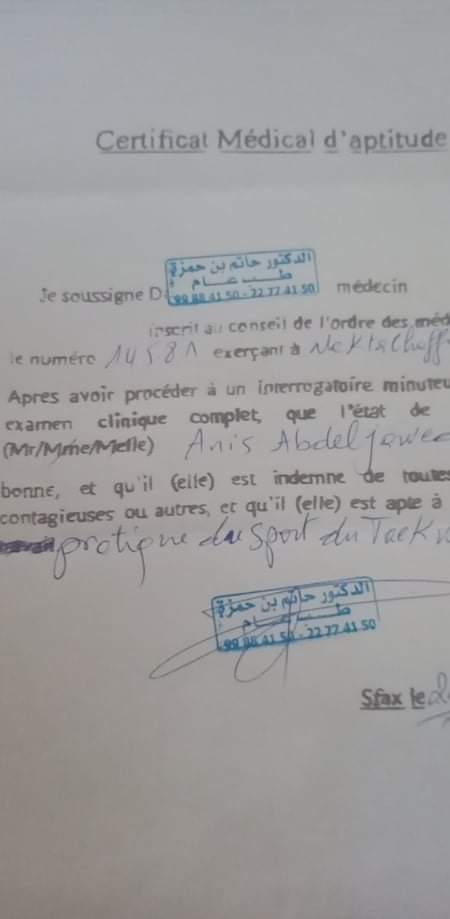 Certificat Médical d'aptitude
الدكتور حاتم بن حمزة
طب عام
99 88 41 50 - 22 77 41 50
Je soussigne D médecin
inscrit au conseil de l'ordre des méd
le numéro 14581 exerçant à
Apres avoir procéder à un interrogatoire minuteu
examen clinique complet, que l'état de
(Mr/Mme/Melle) Anis Abdeljawed
bonne, et qu'il (elle) est indemne de toutes
contagieuses ou autres, et qu'il (elle) est apte à
protique du Sport du Taek
الدكتور حاتم بن حمزة
طب عام
99 88 41 50 - 22 77 41 50
Sfax le